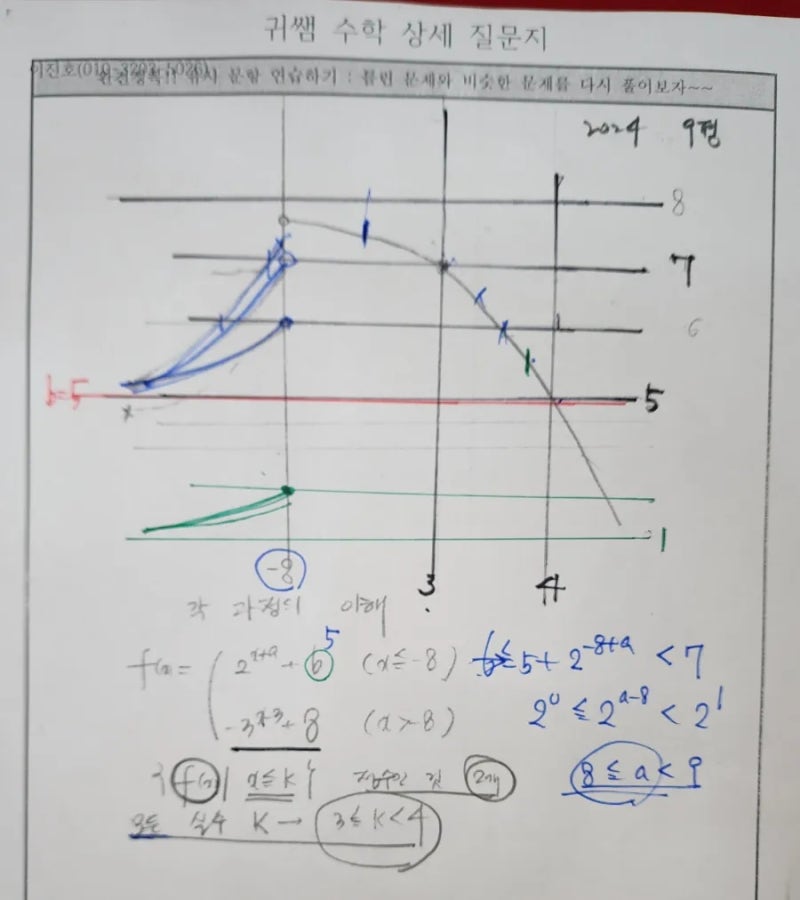 귀쌤 수학 상세 질문지
유사 문항 연습하기 : 틀린 문제와 비슷한 문제를 다시 풀어보자~~
2024 9평
8
7
6
b=5
5
1
-8
3
4
각 과정의 이해
f(x)= 2^{x+a} + b (x≤-8)
5
-3^{x-3}+8 (x>-8)
6≤5+2^{-8+a} <7
2^0 ≤ 2^{a-8} < 2^1
8 ≤ a < 9
{f(x)| x≤k} 정수인 것 2개
모든 실수 K → 3≤K<4